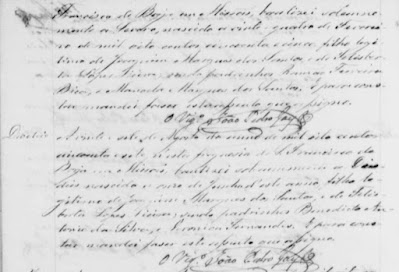 Francisco de Borja em Missoes, baptisei solemne
mente a Lerato, nascido a vinte quatro de Feverei
ro de mil oito centos cincoenta e cinco, filho legi
timo de Joaquim Marques dos Santos, e de Felisber
ta Lopes Vieira, padrinhos Thomas Ferreira
e Manoela Marques dos Santos. E para cons
tar mandei fazer este assento que assigno.
O Vigº João Pedro Gay
A vinte sete de Agosto do anno de mil oito centos
cincoenta e sete nesta freguesia de S. Francisco de
Borja em Missoes, baptisei solemnemente a
nascida a onze de Junho deste anno, filha le
gitima de Joaquim Marques dos Santos, e de Felis
berta Lopes Vieira; padrinhos Benedicto An
tonio da Silva, e Fernandes. E para cons
tar mandei fazer este assento que assigno.
O Vigº João Pedro Gay